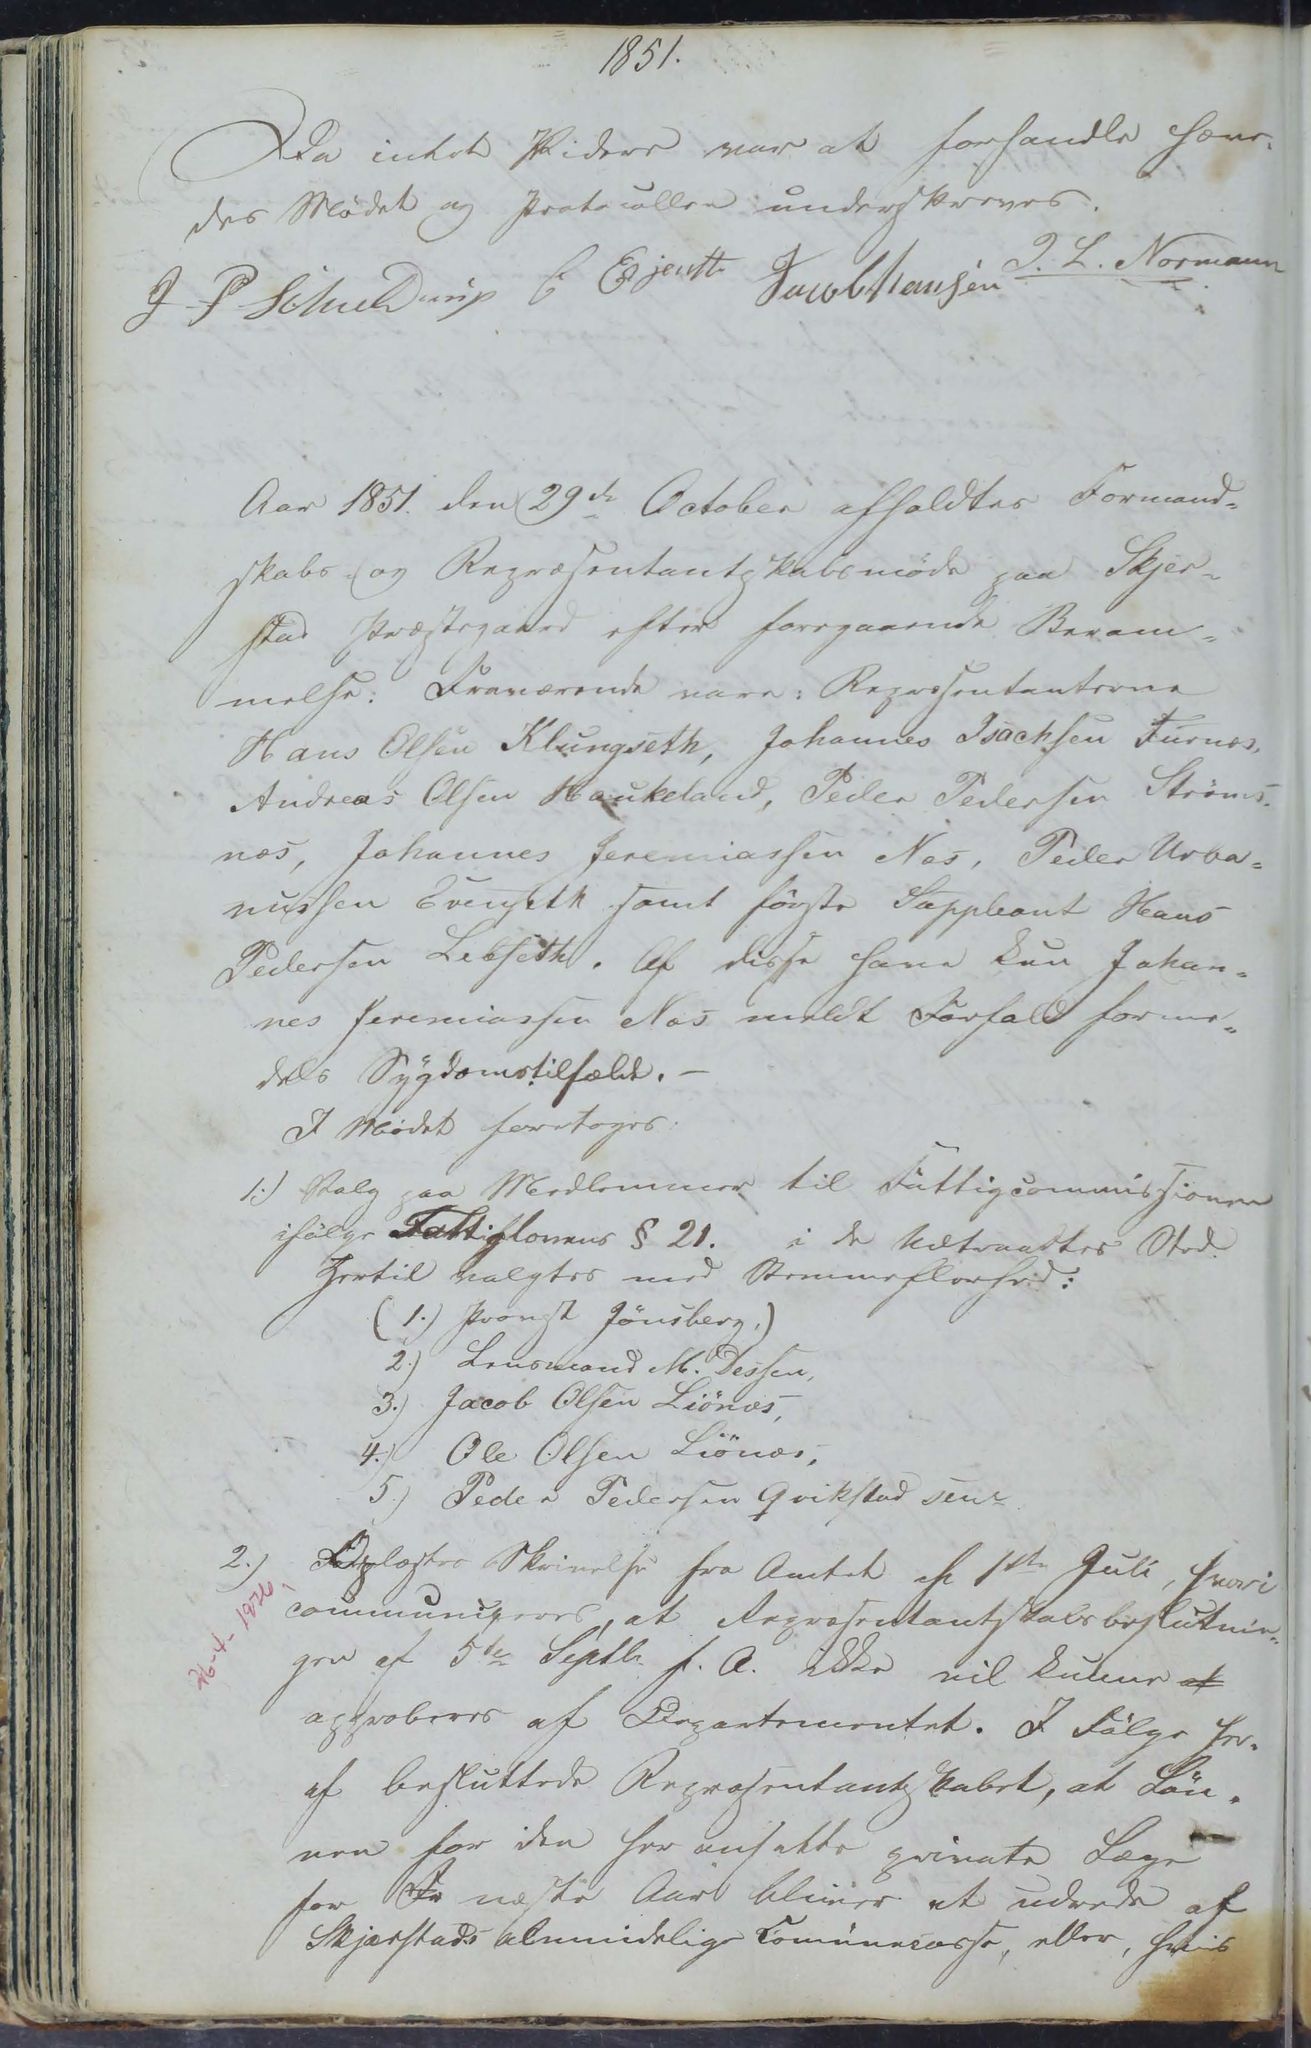 1851.
Da intet Videre var at forhandle hæve-
des Mødet og Protocollen underskreves.
J P Schieldrup Jacob Hansen J. L. Normann
Aar 1851. den 29de October afholdtes Formand-
skabs- og Repræsentantskabsmøde paa Skjer-
stad Præstegaard efter foregaaende Beram-
melse: Fraværende vare: Repræsentanterne
Hans Olsen Klungseth, Johannes Isachsen Furnes,
Andreas Olsen Haukeland, Peder Pedersen Ströms-
næs, Johannes Jeremiassen Næs, Peder Urba-
nussen Evenseth samt første Suppleant Hans
Pedersen Lebseth. Af disse have kun Johan-
nes Jeremiassen Næs meldt Forfald forme-
delst Sygdomstilfælde. —
I Mødet foretoges:
1.) Valg paa Medlemmer til Fattigcommissionen
ifølge Fattiglovens § 21. i de Udtraadtes Sted.
Hertil valgtes med Stemmefleerhed:
(1.) Provst Jönsberg.)
2.) Lensmand M. Dessen,
3.) Jacob Olsen Liönæs,
4.) Ole Olsen Liönæs,
5.) Peder Pedersen Qvikstad senr
2.) Oplæstes Skrivelse fra Amtet af 1ste Juli, hvori
communiceres, at Repræsentantskabsbeslutnin-
gen af 5te Septbr f. A. ikke vil kunne at
approberes af Departementet. I Følge her-
af besluttede Repræsentantskabet, at Løn-
nen for den her ansatte private Læge
for næste Aar bliver at udrede af
Skjerstads almindelige Communecasse, eller, hvis